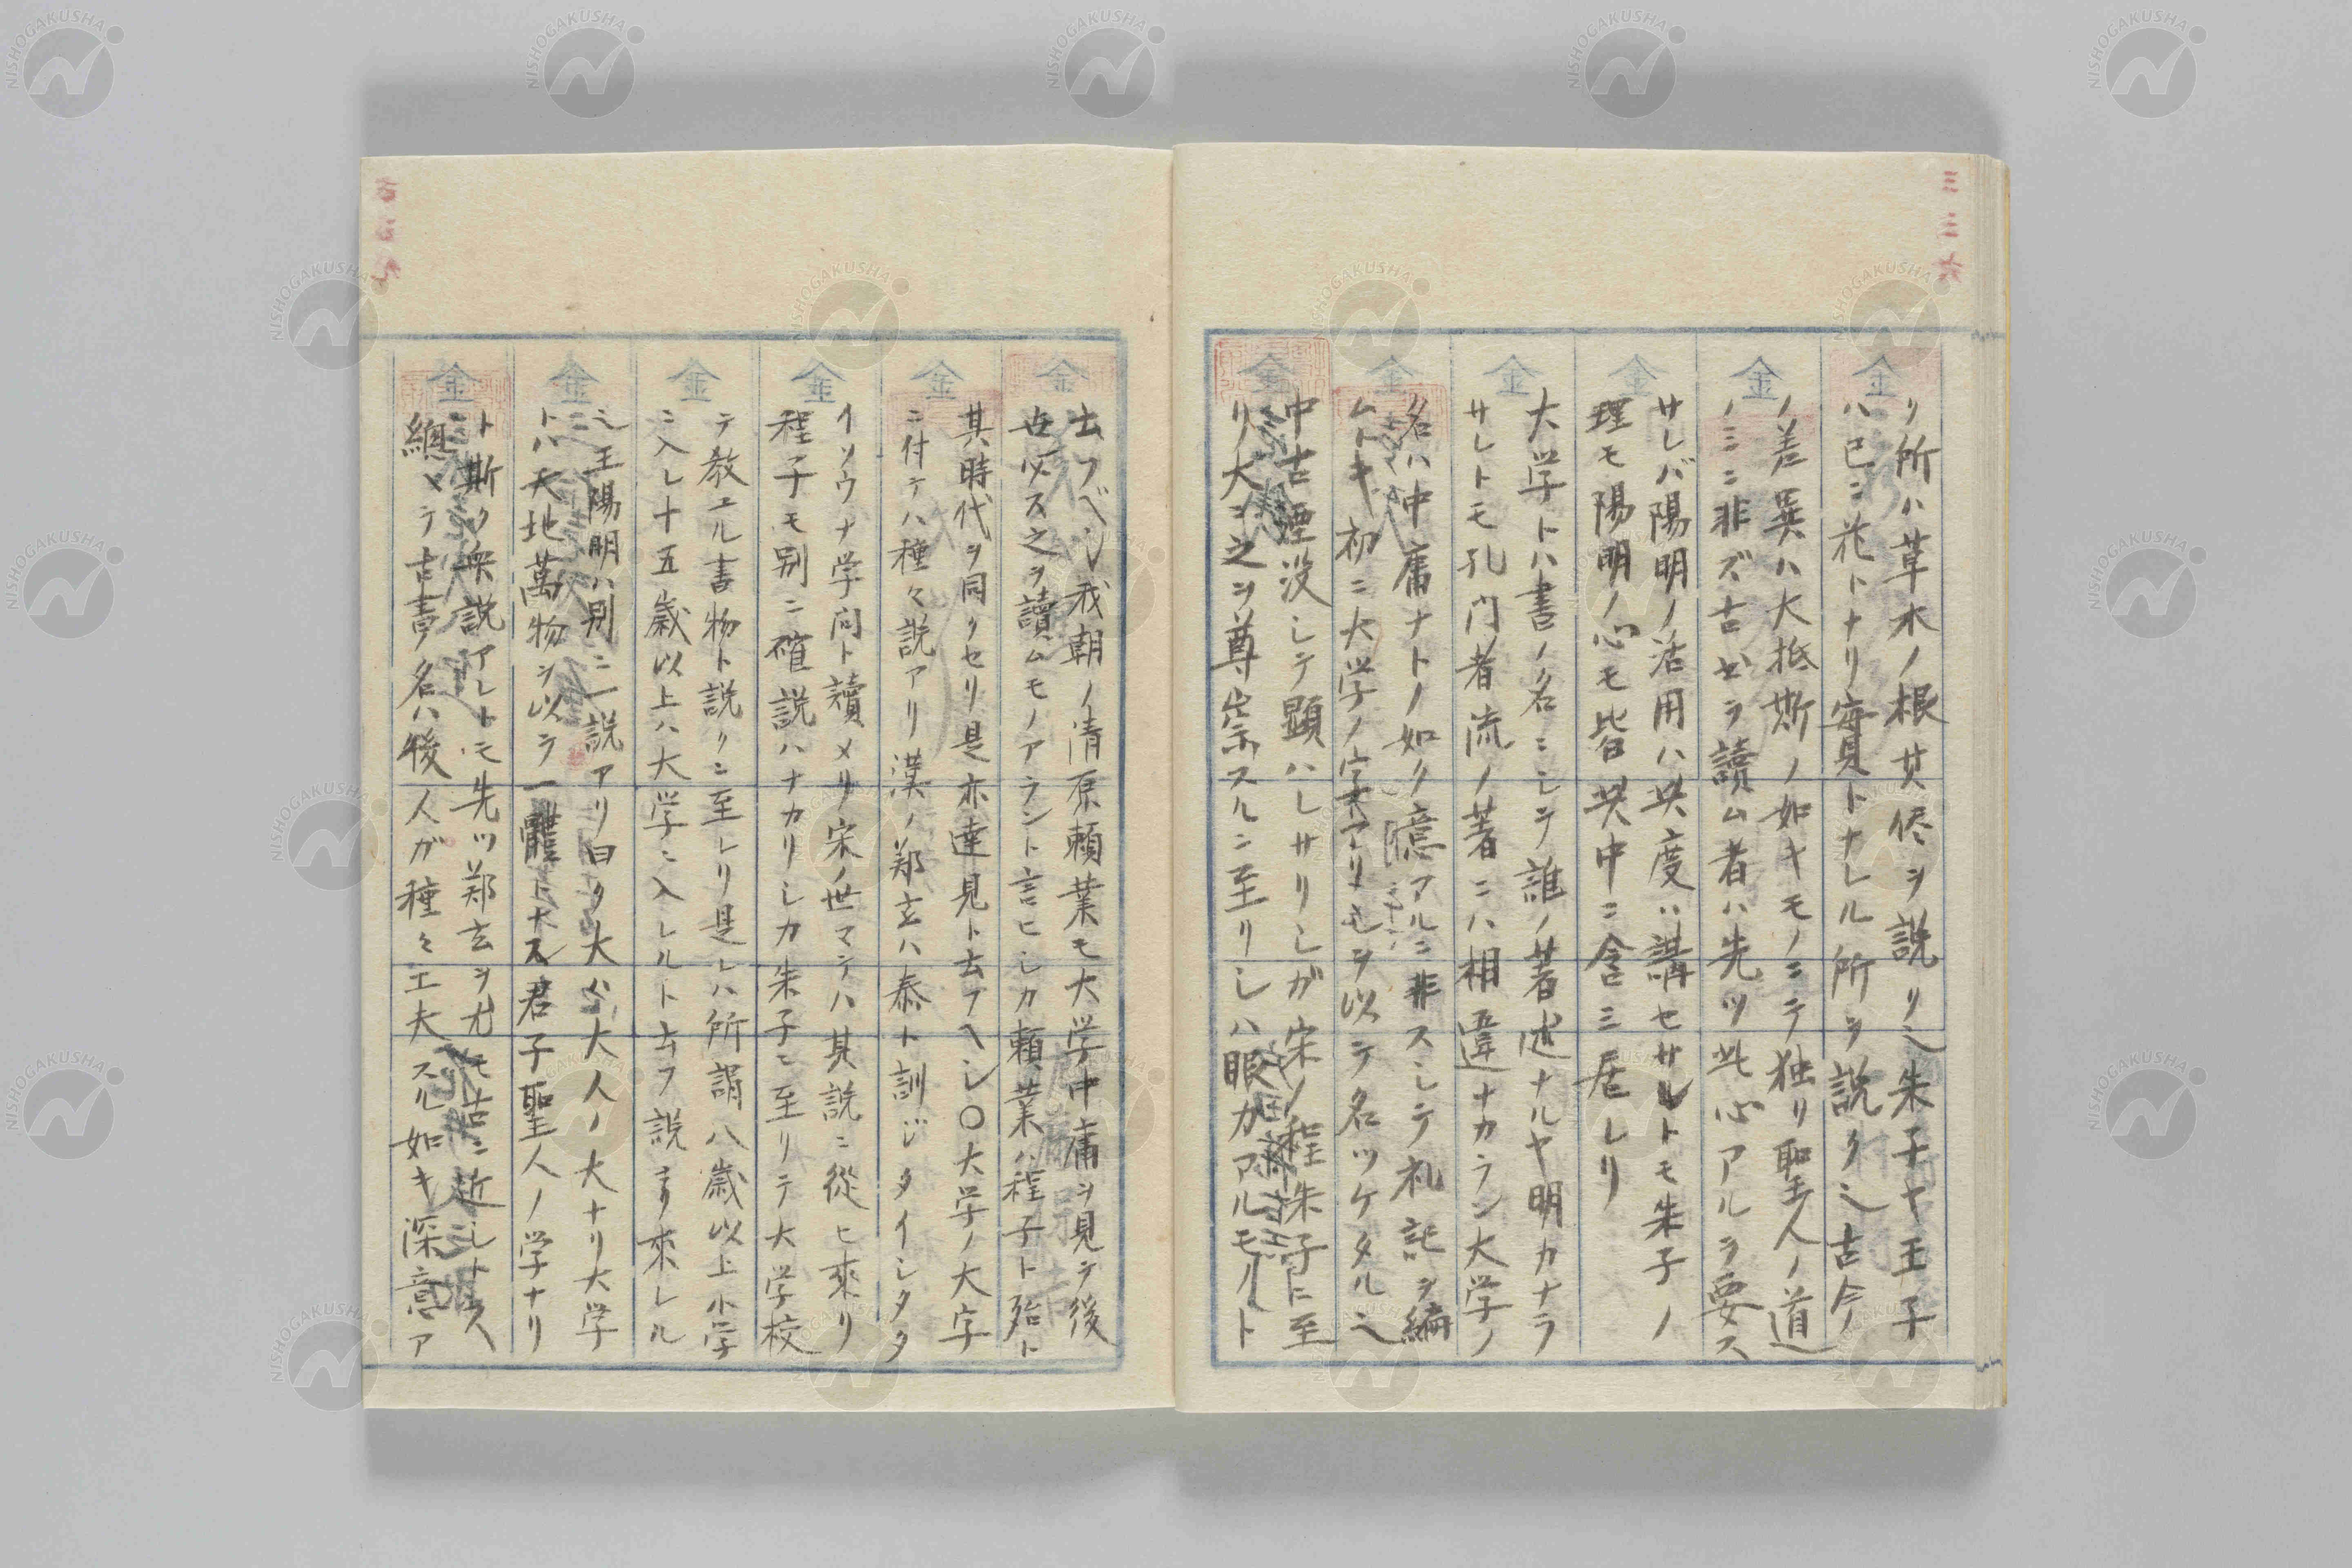 リ所ハ草木ノ根其侭ヲ説リ之朱子ヤ王子
ハ已ニ花トナリ實トナレル所ヲ説ク之古今
ノ差異ハ大抵斯ノ如キモノニテ独リ聖人ノ道
ノミニ非ズ古書ヲ讀ム者ハ先ツ此心アルヲ要ス
サレバ陽明ノ活用ハ此度ハ講セサルトモ朱子ノ
理モ陽明ノ心モ皆其中ニ含ミ居レリ
大学トハ書ノ名ニシテ誰ノ著述ナルヤ明カナラ
サレトモ孔門者流ノ著ニハ相違ナカラン大学ノ
名ハ中庸ナトノ如ク意アルニ非スシテ礼記ヲ編
ムトキ初ニ大学ノ字アリシヲ以テ名ツケタル之
中古湮没シテ顕ハレサリシガ宋ノ程朱子ニ至
リ大ニ之ヲ尊崇スルニ至リシハ眼カアルモノト
去フベシ我朝ノ清原頼業モ大学中庸ヲ見テ後
世必ス之ヲ讀ムモノアラント言ヒシカ頼業ハ程子ト殆ト
其時代ヲ同クセリ是亦達見ト云フヘシ〇大学ノ大字
ニ付テハ種々説アリ漢ノ鄭玄ハ泰ト訓ジタイシタタ
イソウナ学問ト讀メリ宋ノ世マテハ其説ニ從ヒ來リ
程子モ別ニ確説ハナカリシカ朱子ニ至リテ大学校
テ教エル書物ト説クニ至レリ是レハ所謂八歳以上小学
ニ入レ十五歳以上ハ大学ニ入レルト云フ説ヨリ來レル
之王陽明ハ別ニ一説アリ曰ク大ハ大人ノ大ナリ大学
トハ天地萬物ヲ以テ一體トス君子聖人ノ学ナリ
ト斯ク衆説アレトモ先ツ鄭玄ヲ尤モ古ニ近シトス
總ヘテ古書ノ名ハ後人ガ種々工夫スル如キ深意ア
三三六
NISHOGAKUSHA